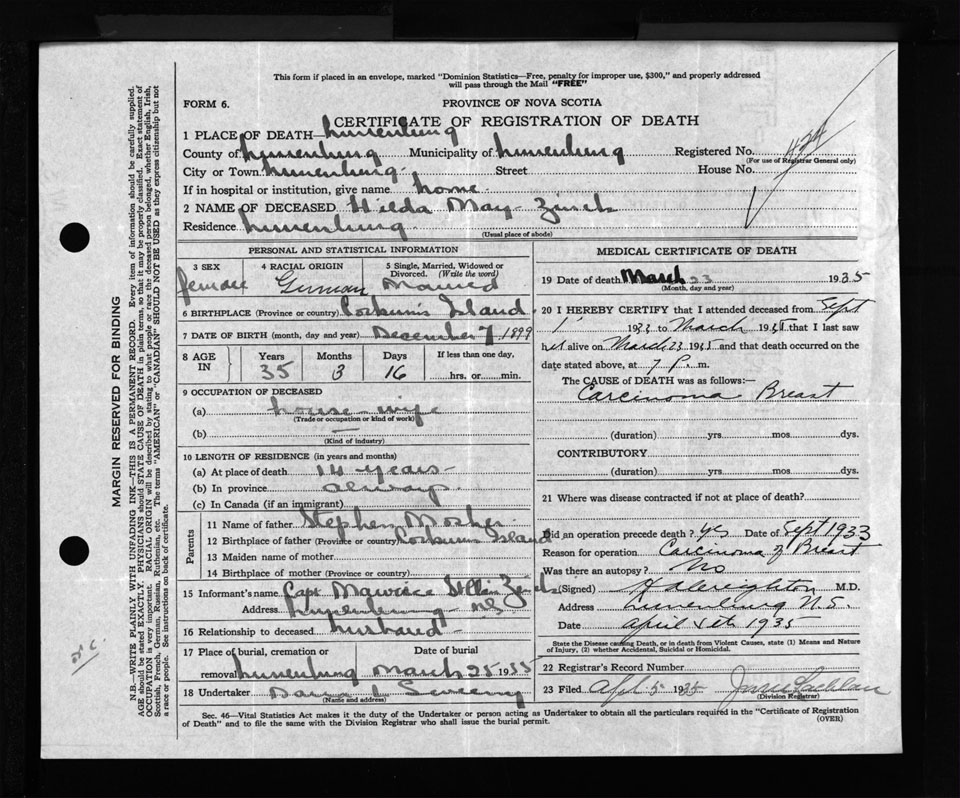 This form if placed in an envelope, marked "Dominion Statistics—Free, penalty for improper use, $300," and properly addressed
will pass through the Mail "FREE"
FORM 6.
PROVINCE OF NOVA SCOTIA
CERTIFICATE OF REGISTRATION OF DEATH
1 PLACE OF DEATH Lunenburg
County of Lunenburg Municipality of Lunenburg Registered No.
(For use of Registrar General only)
City or Town Lunenburg Street House No.
If in hospital or institution, give name home
2 NAME OF DECEASED Hilda May Zinck
Residence Lunenburg
(Usual place of abode)
PERSONAL AND STATISTICAL INFORMATION
3 SEX 4 RACIAL ORIGIN 5 Single, Married, Widowed or
Divorced. (Write the word)
female German Married
6 BIRTHPLACE (Province or country) Corkum's Island
7 DATE OF BIRTH (month, day and year) December 7, 1899
8 AGE IN Years Months Days If less than one day,
35 3 16 hrs. or min.
9 OCCUPATION OF DECEASED
(a) house-wife
(Trade or occupation or kind of work)
(b) —
(Kind of industry)
10 LENGTH OF RESIDENCE (in years and months)
(a) At place of death 14 years
(b) In province always
(c) In Canada (if an immigrant)
Parents
11 Name of father Stephen Mosher
12 Birthplace of father (Province or country) Corkum's Island
13 Maiden name of mother
14 Birthplace of mother (Province or country)
15 Informant's name Capt Maurice Zinck
Address Lunenburg - N.S.
16 Relationship to deceased husband
17 Place of burial, cremation or Date of burial
removal Lunenburg March 25 1935
18 Undertaker
(Name and address)
MEDICAL CERTIFICATE OF DEATH
19 Date of death March 23 1935
(Month, day and year)
20 I HEREBY CERTIFY that I attended deceased from Sept
1 1933 to March 1935 that I last saw
her alive on March 23 1935 and that death occurred on the
date stated above, at 7 P. m.
The CAUSE of DEATH was as follows:—
Carcinoma Breast
(duration) yrs. mos. dys.
CONTRIBUTORY
(duration) yrs. mos. dys.
21 Where was disease contracted if not at place of death?
Did an operation precede death? yes Date of Sept 1933
Reason for operation Carcinoma of Breast
Was there an autopsy? No
(Signed) M.D.
Address Lunenburg N.S.
Date April 1935
State the Disease causing Death, or in death from Violent Causes, state (1) Means and Nature
of Injury, (2) whether Accidental, Suicidal or Homicidal.
22 Registrar's Record Number
23 Filed Apl 5 1935
(Division Registrar)
Sec. 46—Vital Statistics Act makes it the duty of the Undertaker or person acting as Undertaker to obtain all the particulars required in the "Certificate of Registration
of Death" and to file the same with the Division Registrar who shall issue the burial permit. (OVER)
MARGIN RESERVED FOR BINDING
N.B.—WRITE PLAINLY WITH UNFADING INK—THIS IS A PERMANENT RECORD. Every item of information should be carefully supplied.
AGE should be stated EXACTLY. PHYSICIANS should STATE CAUSE OF DEATH in plain terms, so that it may be properly classified. Exact statement of
OCCUPATION is very important. RACIAL ORIGIN will be described by stating to what people or race the deceased person belonged, whether English, Irish,
Scottish, French, German, Russian, Ruthenian, etc. The terms "AMERICAN" or "CANADIAN" SHOULD NOT BE USED as they express citizenship but not
a race or people. See instructions on back of certificate.